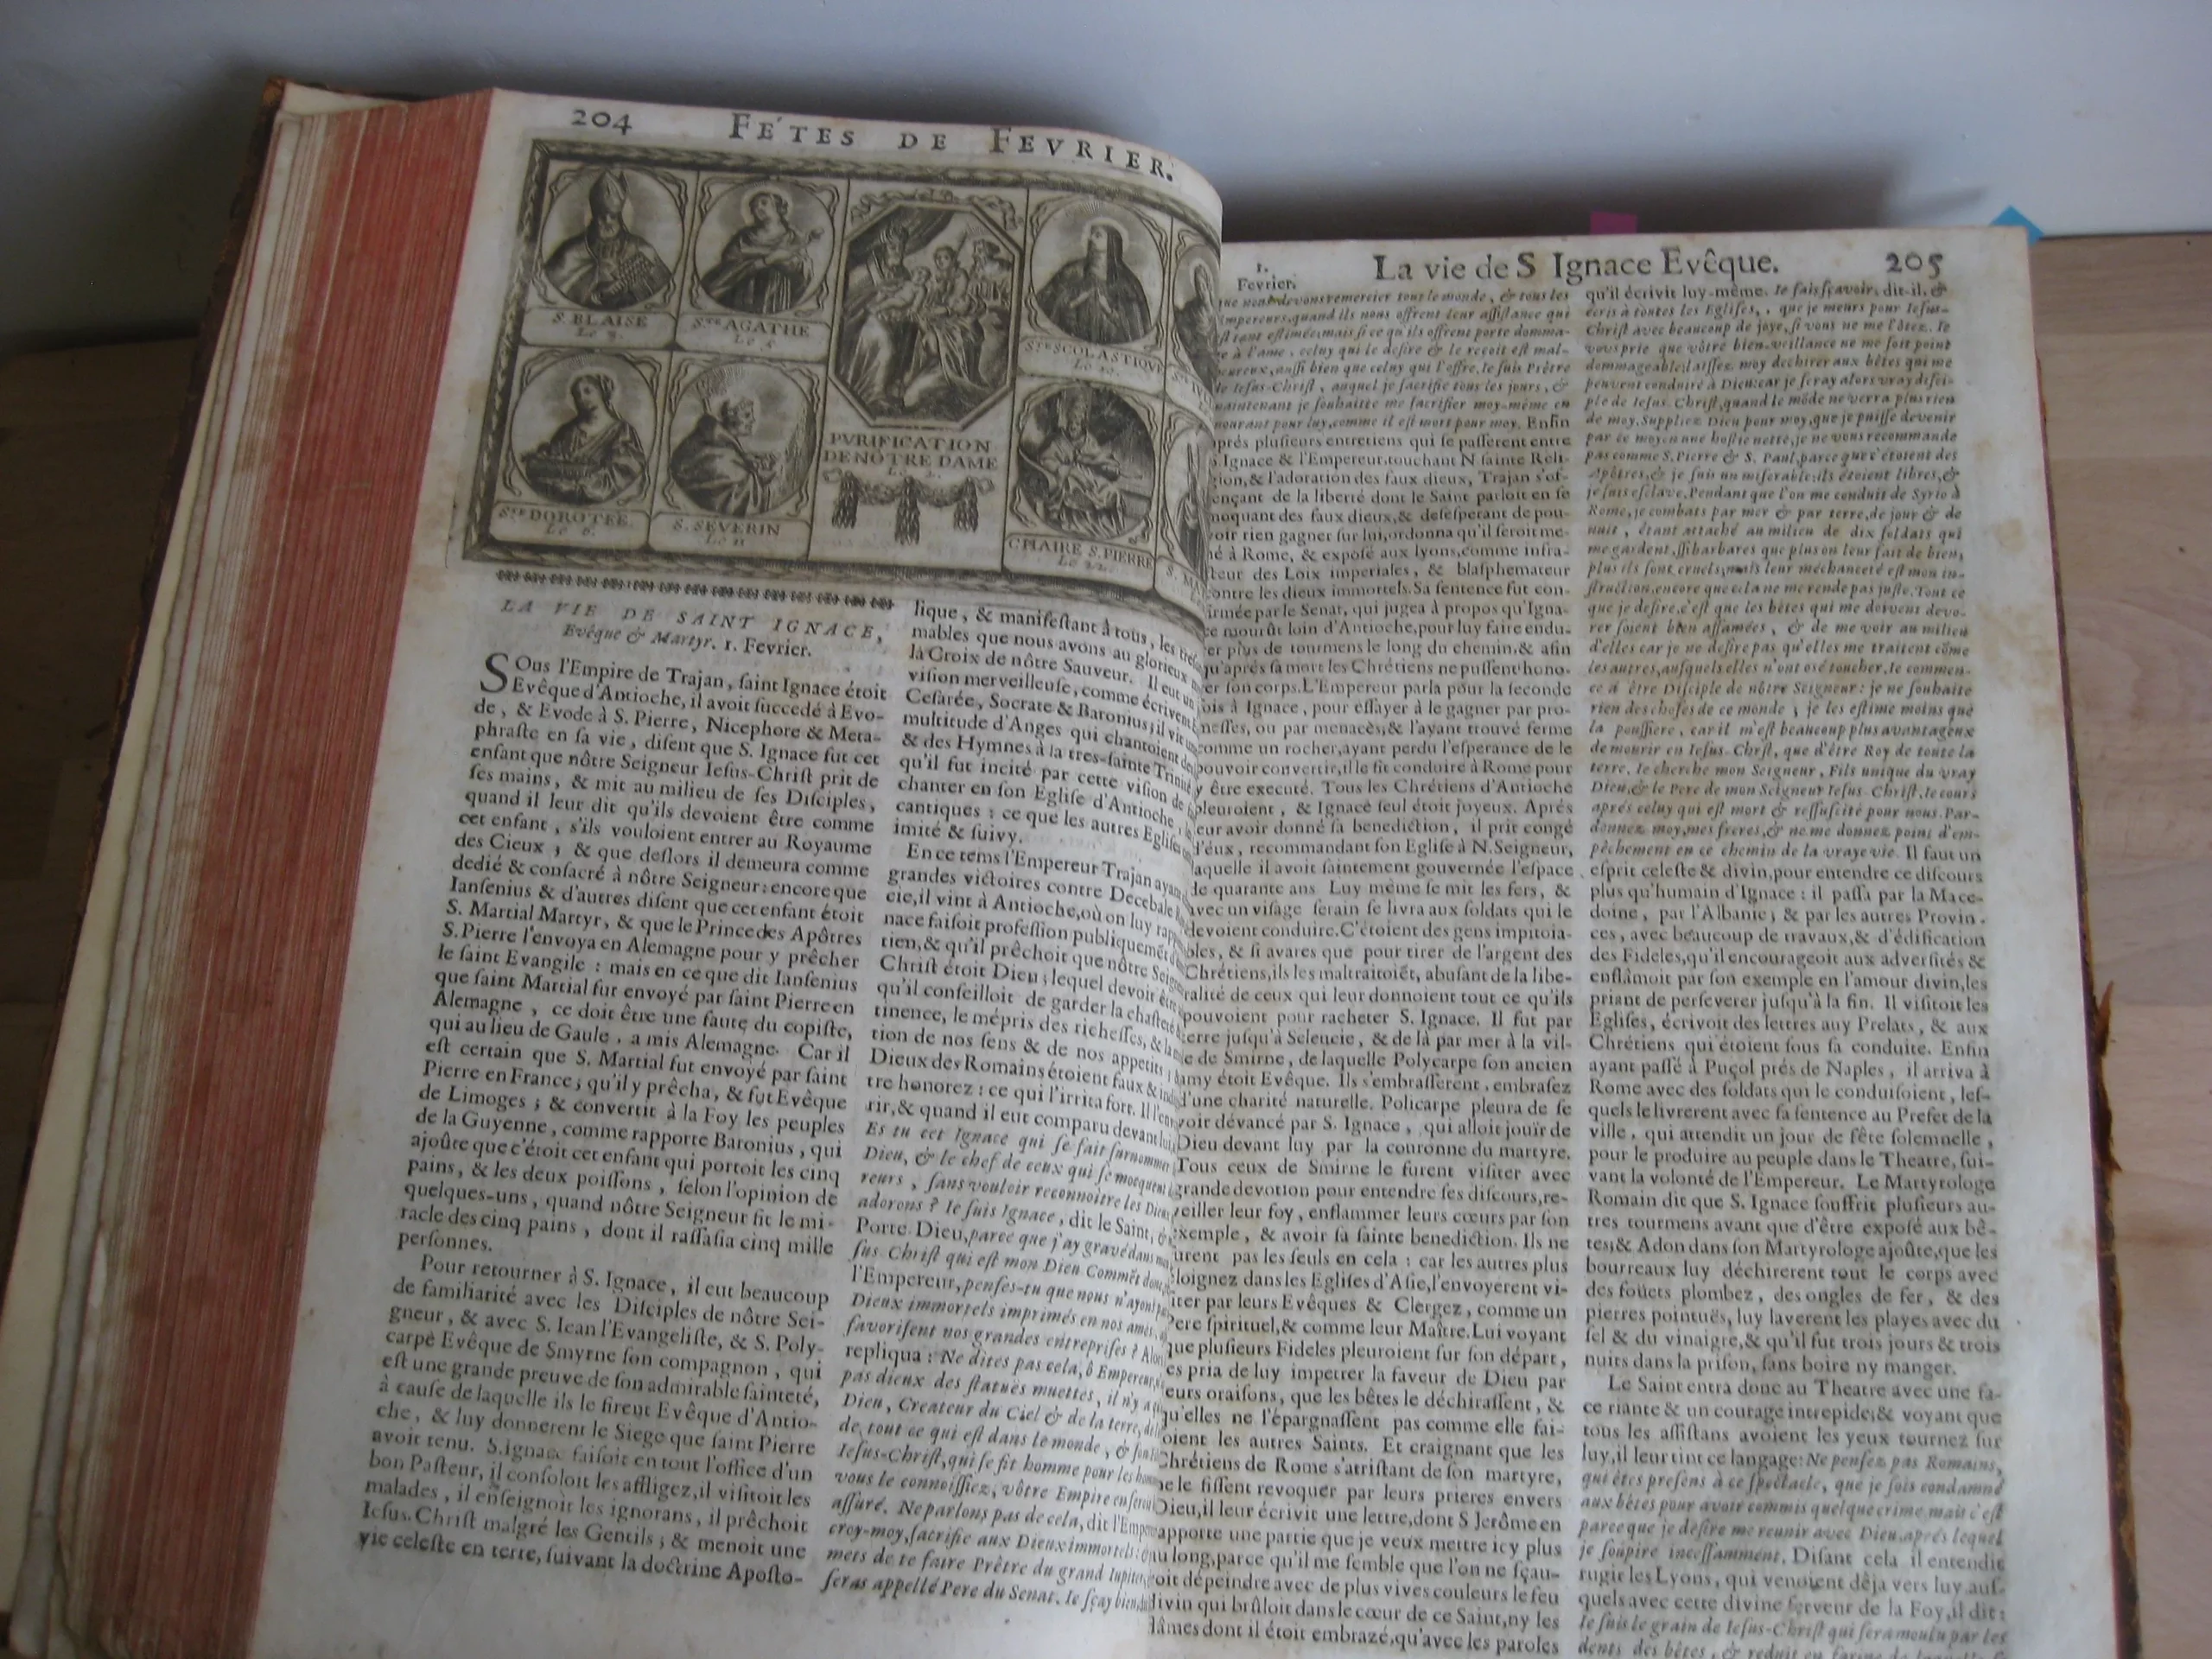 204 FÉTES DE FEVRIER.
S. BLAISE
Le 3.
Ste AGATHE
Le 5
PVRIFICATION
DE NÔTRE DAME
Le 2.
Ste SCOLASTIQVE
Le 10.
Ste DOROTEE
Le 6.
S. SEVERIN
Le 11
CHAIRE S. PIERRE
Le 22.
LA VIE DE SAINT IGNACE,
Evêque & Martyr. 1. Fevrier.
SOus l'Empire de Trajan, ſaint Ignace étoit
Evêque d'Antioche, il avoit ſuccedé à Evo-
de, & Evode à S. Pierre, Nicephore & Meta-
phraſte en ſa vie, diſent que S. Ignace fut cet
enfant que nôtre Seigneur Ieſus-Chriſt prit de
ſes mains, & mit au milieu de ſes Diſciples,
quand il leur dit qu'ils devoient être comme
cet enfant, s'ils vouloient entrer au Royaume
des Cieux; & que deſlors il demeura comme
dedié & conſacré à nôtre Seigneur: encore que
Ianſenius & d'autres diſent que cet enfant étoit
S. Martial Martyr, & que le Prince des Apôtres
S. Pierre l'envoya en Alemagne pour y prêcher
le ſaint Evangile: mais en ce que dit Ianſenius
que ſaint Martial fut envoyé par ſaint Pierre en
Alemagne, ce doit être une faute du copiſte,
qui au lieu de Gaule, a mis Alemagne. Car il
eſt certain que S. Martial fut envoyé par ſaint
Pierre en France; qu'il y prêcha, & fut Evêque
de Limoges; & convertit à la Foy les peuples
de la Guyenne, comme rapporte Baronius, qui
ajoûte que c'étoit cet enfant qui portoit les cinq
pains, & les deux poiſſons, ſelon l'opinion de
quelques-uns, quand nôtre Seigneur fit le mi-
racle des cinq pains, dont il raſſaſia cinq mille
perſonnes.
Pour retourner à S. Ignace, il eut beaucoup
de familiarité avec les Diſciples de nôtre Sei-
gneur, & avec S. Iean l'Evangeliſte, & S. Poly-
carpe Evêque de Smyrne ſon compagnon, qui
eſt une grande preuve de ſon admirable ſainteté,
à cauſe de laquelle ils le firent Evêque d'Antio-
che, & luy donnerent le Siege que ſaint Pierre
avoit tenu. S. Ignace faiſoit en tout l'office d'un
bon Paſteur, il conſoloit les affligez, il viſitoit les
malades, il enſeignoit les ignorans, il prêchoit
Ieſus-Chriſt malgré les Gentils; & menoit une
vie celeſte en terre, ſuivant la doctrine Apoſto-
lique, & manifeſtant à tous, les
mables que nous avons au glorieux
la Croix de nôtre Sauveur. Il eut un
viſion merveilleuſe, comme écrivent
Ceſarée, Socrate & Baronius; il vit un
multitude d'Anges qui chantoient
& des Hymnes à la tres-ſainte Trinité
qu'il fut incité par cette viſion de
chanter en ſon Egliſe d'Antioche,
cantiques: ce que les autres Egliſes
imité & ſuivy.
En ce tems l'Empereur Trajan ayant
grandes victoires contre Decebale
cie, il vint à Antioche, où on luy
nace faiſoit profeſſion publiquemét
tien, & qu'il prêchoit que nôtre
Chriſt étoit Dieu; lequel devoit
qu'il conſeilloit de garder la chaſteté
tinence, le mépris des richeſſes, &
tion de nos ſens & de nos appetits;
Dieux des Romains étoient faux &
tre honorez: ce qui l'irrita fort. Il
rir, & quand il eut comparu devant
Es tu cet Ignace qui ſe fait ſurnommer
Dieu, & le chef de ceux qui ſe moquent
reurs, ſans vouloir reconnoître les
adorons? Ie ſuis Ignace, dit le Saint, &
Porte-Dieu, parce que j'ay gravé dans
ſus Chriſt qui eſt mon Dieu Commēt
l'Empereur, penſes-tu que nous n'ayons
Dieux immortels imprimés en nos ames,
favoriſent nos grandes entrepriſes?
repliqua: Ne dites pas cela, ô Empereur,
pas dieux des ſtatuës muettes, il n'y a
Dieu, Createur du Ciel & de la terre,
de tout ce qui eſt dans le monde, &
Ieſus-Chriſt, qui ſe fit homme pour les
vous le connoiſſiez, vôtre Empire en
aſſuré. Ne parlons pas de cela, dit
croy-moy, ſacrifie aux Dieux immortels:
mets de te faire Prêtre du grand Iupiter,
ſeras appellé Pere du Senat. Ie ſçay bien
1. Fevrier. La vie de S Ignace Evêque. 205
que nous devons remercier tout le monde, & tous les
Empereurs, quand ils nous offrent leur aſſiſtance qui
eſt tant eſtimée; mais ſi ce qu'ils offrent porte domma-
ge à l'ame, celuy qui le deſire & le reçoit eſt mal-
heureux, auſſi bien que celuy qui l'offre. Ie ſuis Prêtre
de Ieſus-Chriſt, auquel je ſacrifie tous les jours, &
maintenant je ſouhaitte me ſacrifier moy-même en
mourant pour luy, comme il eſt mort pour moy. Enfin
aprés pluſieurs entretiens qui ſe paſſerent entre
S. Ignace & l'Empereur, touchant N. ſainte Reli-
gion, & l'adoration des faux dieux, Trajan s'of-
fençant de la liberté dont le Saint parloit en ſe
moquant des faux dieux, & deſeſperant de pou-
voir rien gagner ſur lui, ordonna qu'il ſeroit me-
né à Rome, & expoſé aux lyons, comme infra-
cteur des Loix imperiales, & blaſphemateur
contre les dieux immortels. Sa ſentence fut con-
firmée par le Senat, qui jugea à propos qu'Igna-
ce mourût loin d'Antioche, pour luy faire endu-
rer plus de tourmens le long du chemin, & afin
qu'aprés ſa mort les Chrétiens ne puſſent hono-
rer ſon corps. L'Empereur parla pour la ſeconde
fois à Ignace, pour eſſayer à le gagner par pro-
meſſes, ou par menaces; & l'ayant trouvé ferme
comme un rocher, ayant perdu l'eſperance de le
pouvoir convertir, il le fit conduire à Rome pour
y être executé. Tous les Chrétiens d'Antioche
pleuroient, & Ignace ſeul étoit joyeux. Aprés
leur avoir donné ſa benediction, il prit congé
d'éux, recommandant ſon Egliſe à N. Seigneur,
laquelle il avoit ſaintement gouvernée l'eſpace
de quarante ans Luy même ſe mit les fers, &
avec un viſage ſerain ſe livra aux ſoldats qui le
devoient conduire. C'étoient des gens impitoia-
bles, & ſi avares que pour tirer de l'argent des
Chrétiens, ils les maltraitoiēt, abuſant de la libe-
ralité de ceux qui leur donnoient tout ce qu'ils
pouvoient pour racheter S. Ignace. Il fut par
terre juſqu'à Seleucie, & de là par mer à la vil-
le de Smirne, de laquelle Polycarpe ſon ancien
amy étoit Evêque. Ils s'embraſſerent, embraſez
d'une charité naturelle. Policarpe pleura de ſe
voir dévancé par S. Ignace, qui alloit jouïr de
Dieu devant luy par la couronne du martyre.
Tous ceux de Smirne le furent viſiter avec
grande devotion pour entendre ſes diſcours, re-
veiller leur foy, enflammer leurs cœurs par ſon
exemple, & avoir ſa ſainte benediction. Ils ne
furent pas les ſeuls en cela: car les autres plus
éloignez dans les Egliſes d'Aſie, l'envoyerent vi-
ſiter par leurs Evêques & Clergez, comme un
Pere ſpirituel, & comme leur Maître. Lui voyant
que pluſieurs Fideles pleuroient ſur ſon départ,
les pria de luy impetrer la faveur de Dieu par
leurs oraiſons, que les bêtes le déchiraſſent, &
qu'elles ne l'épargnaſſent pas comme elle fai-
ſoient les autres Saints. Et craignant que les
Chrétiens de Rome s'atriſtant de ſon martyre,
ne le fiſſent revoquer par leurs prieres envers
Dieu, il leur écrivit une lettre, dont S Jerôme en
rapporte une partie que je veux mettre icy plus
au long, parce qu'il me ſemble que l'on ne ſçau-
roit dépeindre avec de plus vives couleurs le feu
divin qui brûloit dans le cœur de ce Saint, ny les
flâmes dont il étoit embrazé, qu'avec les paroles
qu'il écrivit luy-même. Ie fais ſçavoir, dit-il, &
écris à toutes les Egliſes, que je meurs pour Ieſus-
Chriſt avec beaucoup de joye, ſi vous ne me l'ôtez. Ie
vous prie que vôtre bien-veillance ne me ſoit point
dommageable; laiſſez moy dechirer aux bêtes qui me
peuvent conduire à Dieu: car je ſeray alors vray diſci-
ple de Ieſus-Chriſt, quand le mōde ne verra plus rien
de moy. Suppliez Dieu pour moy, que je puiſſe devenir
par ce moyen une hoſtie nette, je ne vous recommande
pas comme S. Pierre & S. Paul, parce que c'étoient des
Apôtres, & je ſuis un miſerable: ils étoient libres, &
je ſuis eſclave. Pendant que l'on me conduit de Syrie à
Rome, je combats par mer & par terre, de jour & de
nuit, étant attaché au milieu de dix ſoldats qui
me gardent, ſi barbares que plus on leur fait de bien,
plus ils ſont cruels, mais leur méchanceté eſt mon in-
ſtruction, encore que cela ne me rende pas juſte. Tout ce
que je deſire, c'eſt que les bêtes qui me doivent devo-
rer ſoient bien affamées, & de me voir au milieu
d'elles car je ne deſire pas qu'elles me traitent cōme
les autres, auſquels elles n'ont oſé toucher. Ie commen-
ce à être Diſciple de nôtre Seigneur: je ne ſouhaite
rien des choſes de ce monde; je les eſtime moins que
la pouſſiere, car il m'eſt beaucoup plus avantageux
de mourir en Ieſus-Chriſt, que d'être Roy de toute la
terre. Ie cherche mon Seigneur, Fils unique du vray
Dieu, & le Pere de mon Seigneur Ieſus-Chriſt. Ie cours
aprés celuy qui eſt mort & reſſuſcité pour nous. Par-
donnez moy, mes freres, & ne me donnez point d'em-
pêchement en ce chemin de la vraye vie. Il faut un
eſprit celeſte & divin, pour entendre ce diſcours
plus qu'humain d'Ignace: il paſſa par la Mace-
doine, par l'Albanie; & par les autres Provin-
ces, avec beaucoup de travaux, & d'édification
des Fideles, qu'il encourageoit aux adverſités &
enflâmoit par ſon exemple en l'amour divin, les
priant de perſeverer juſqu'à la fin. Il viſitoit les
Egliſes, écrivoit des lettres auy Prelats, & aux
Chrétiens qui étoient ſous ſa conduite. Enfin
ayant paſſé à Puçol prés de Naples, il arriva à
Rome avec des ſoldats qui le conduiſoient, leſ-
quels le livrerent avec ſa ſentence au Prefet de la
ville, qui attendit un jour de fête ſolemnelle,
pour le produire au peuple dans le Theatre, ſui-
vant la volonté de l'Empereur. Le Martyrologe
Romain dit que S. Ignace ſouffrit pluſieurs au-
tres tourmens avant que d'être expoſé aux bê-
tes; & Adon dans ſon Martyrologe ajoûte, que les
bourreaux luy déchirerent tout le corps avec
des foüets plombez, des ongles de fer, & des
pierres pointuës, luy laverent les playes avec du
ſel & du vinaigre, & qu'il fut trois jours & trois
nuits dans la priſon, ſans boire ny manger.
Le Saint entra donc au Theatre avec une fa-
ce riante & un courage intrepide; & voyant que
tous les aſſiſtans avoient les yeux tournez ſur
luy, il leur tint ce langage: Ne penſez pas Romains,
qui êtes preſens à ce ſpectacle, que je ſois condamné
aux bêtes pour avoir commis quelque crime, mais c'eſt
parce que je deſire me reunir avec Dieu, aprés lequel
je ſoupire inceſſamment. Diſant cela il entendit
rugir les Lyons, qui venoient déja vers luy auſ-
quels avec cette divine ferveur de la Foy, il dit:
Ie ſuis le grain de Ieſus-Chriſt qui ſera moulu par les
dents des bêtes, & reduit en farine